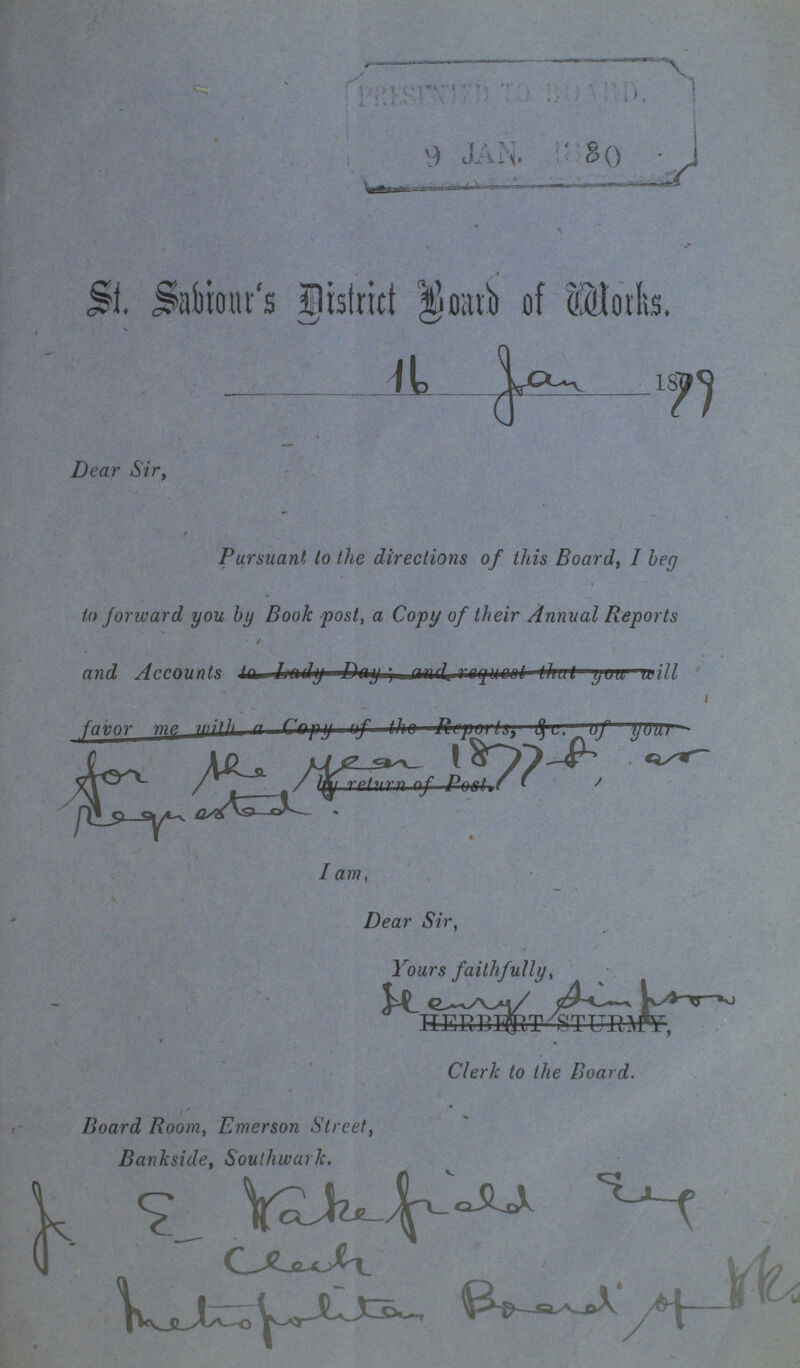 PRESENTED TO BOARD.
9 JAN. 1880
St. Saviour's District Board of Works.
16 Jan 1879
Dear Sir,
Pursuant to the directions of this Board, I beg
to forward you by Book post, a Copy of their Annual Reports
and Accounts to Lady Day; and request that you will
favor me with a Copy of the Reports, &c. of your
for the year 1877-8, as
by return of Post.
requested.
I am,
Dear Sir,
Yours faithfully,
Henry Simpson
HERBERT STURMY,
Clerk to the Board.
Board Room, Emerson Street,
Bankside, Southwark.
J E Wakefield Esq
Clerk
Metropolitan Board of Wks